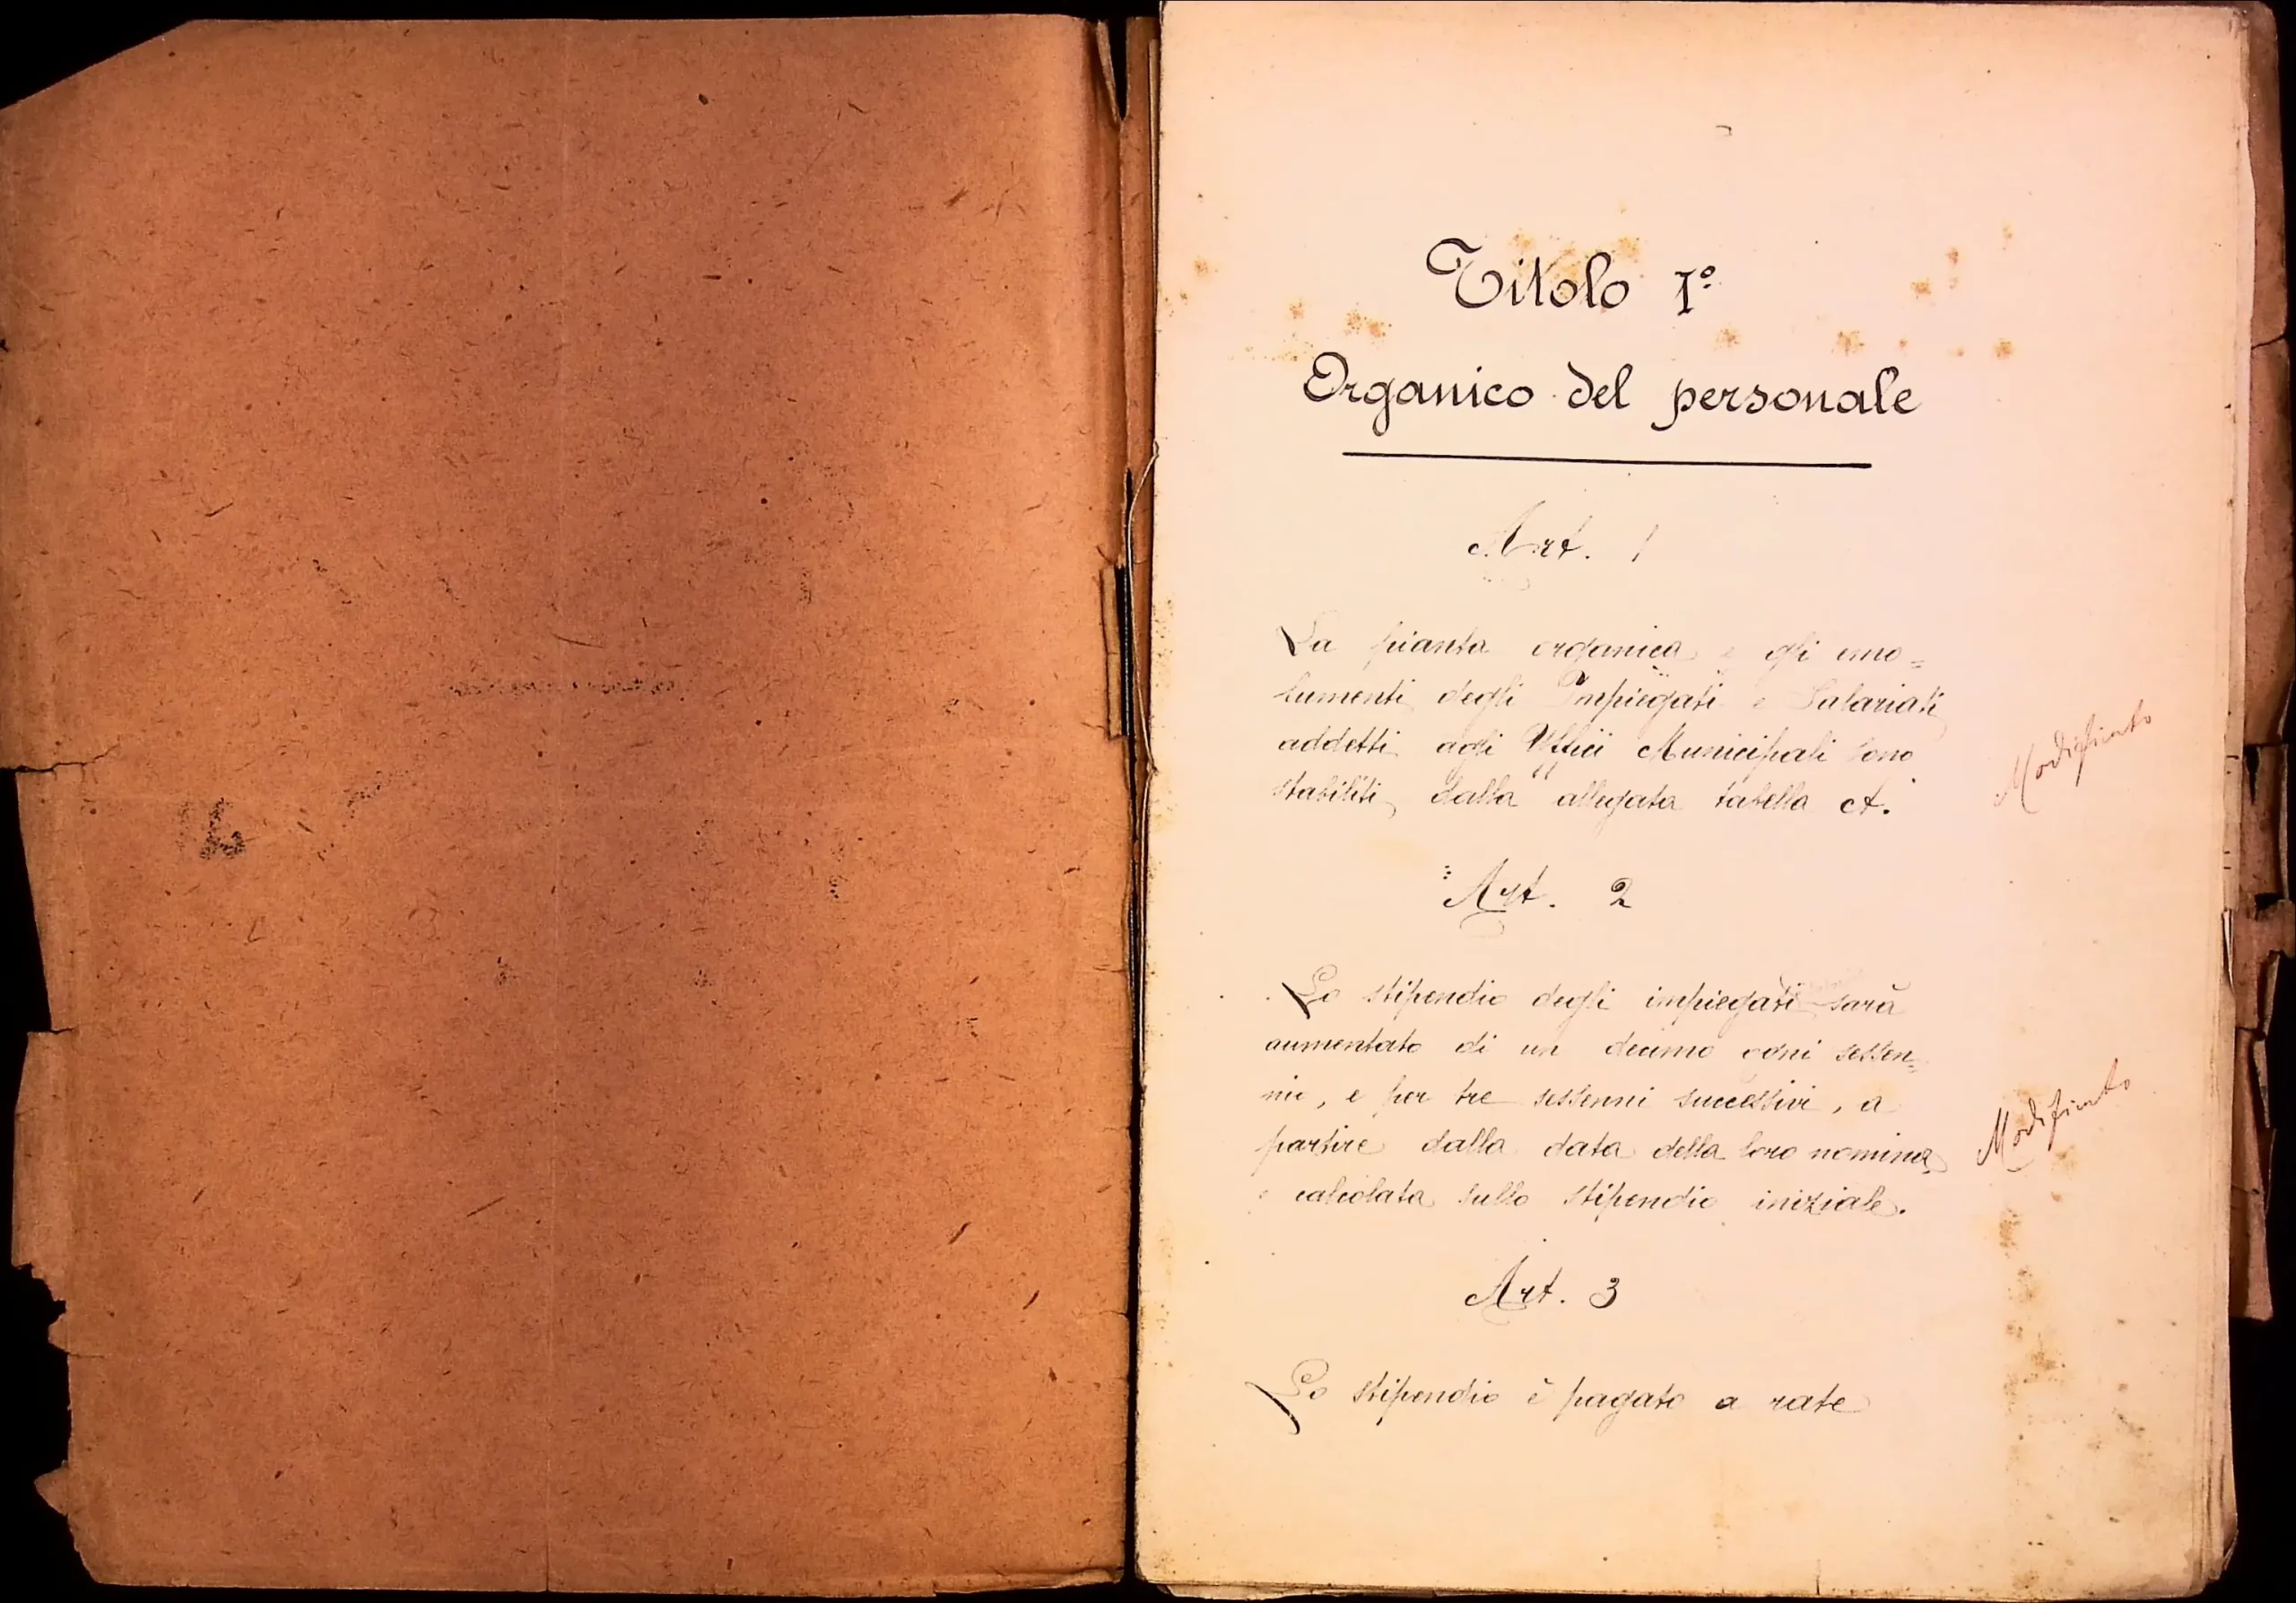 Titolo Iº
Organico del personale
Art. 1
La pianta organica e gli emo=
lumenti degli Impiegati e Salariati
addetti agli Uffici Municipali sono
stabiliti dalla allegata tabella A.
Modificato
Art. 2
Lo stipendio degli impiegati sarà
aumentato di un decimo ogni sessen=
nio, e per tre sessenni successivi, a
partire dalla data della loro nomina,
e calcolata sullo stipendio iniziale.
Modificato
Art. 3
Lo stipendio è pagato a rate